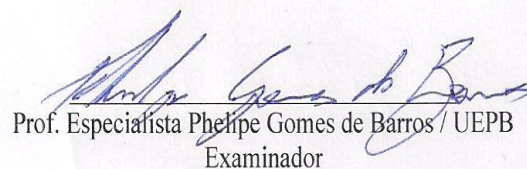 Phelipe Gomes de Barros
Prof. Especialista Phelipe Gomes de Barros / UEPB
Examinador